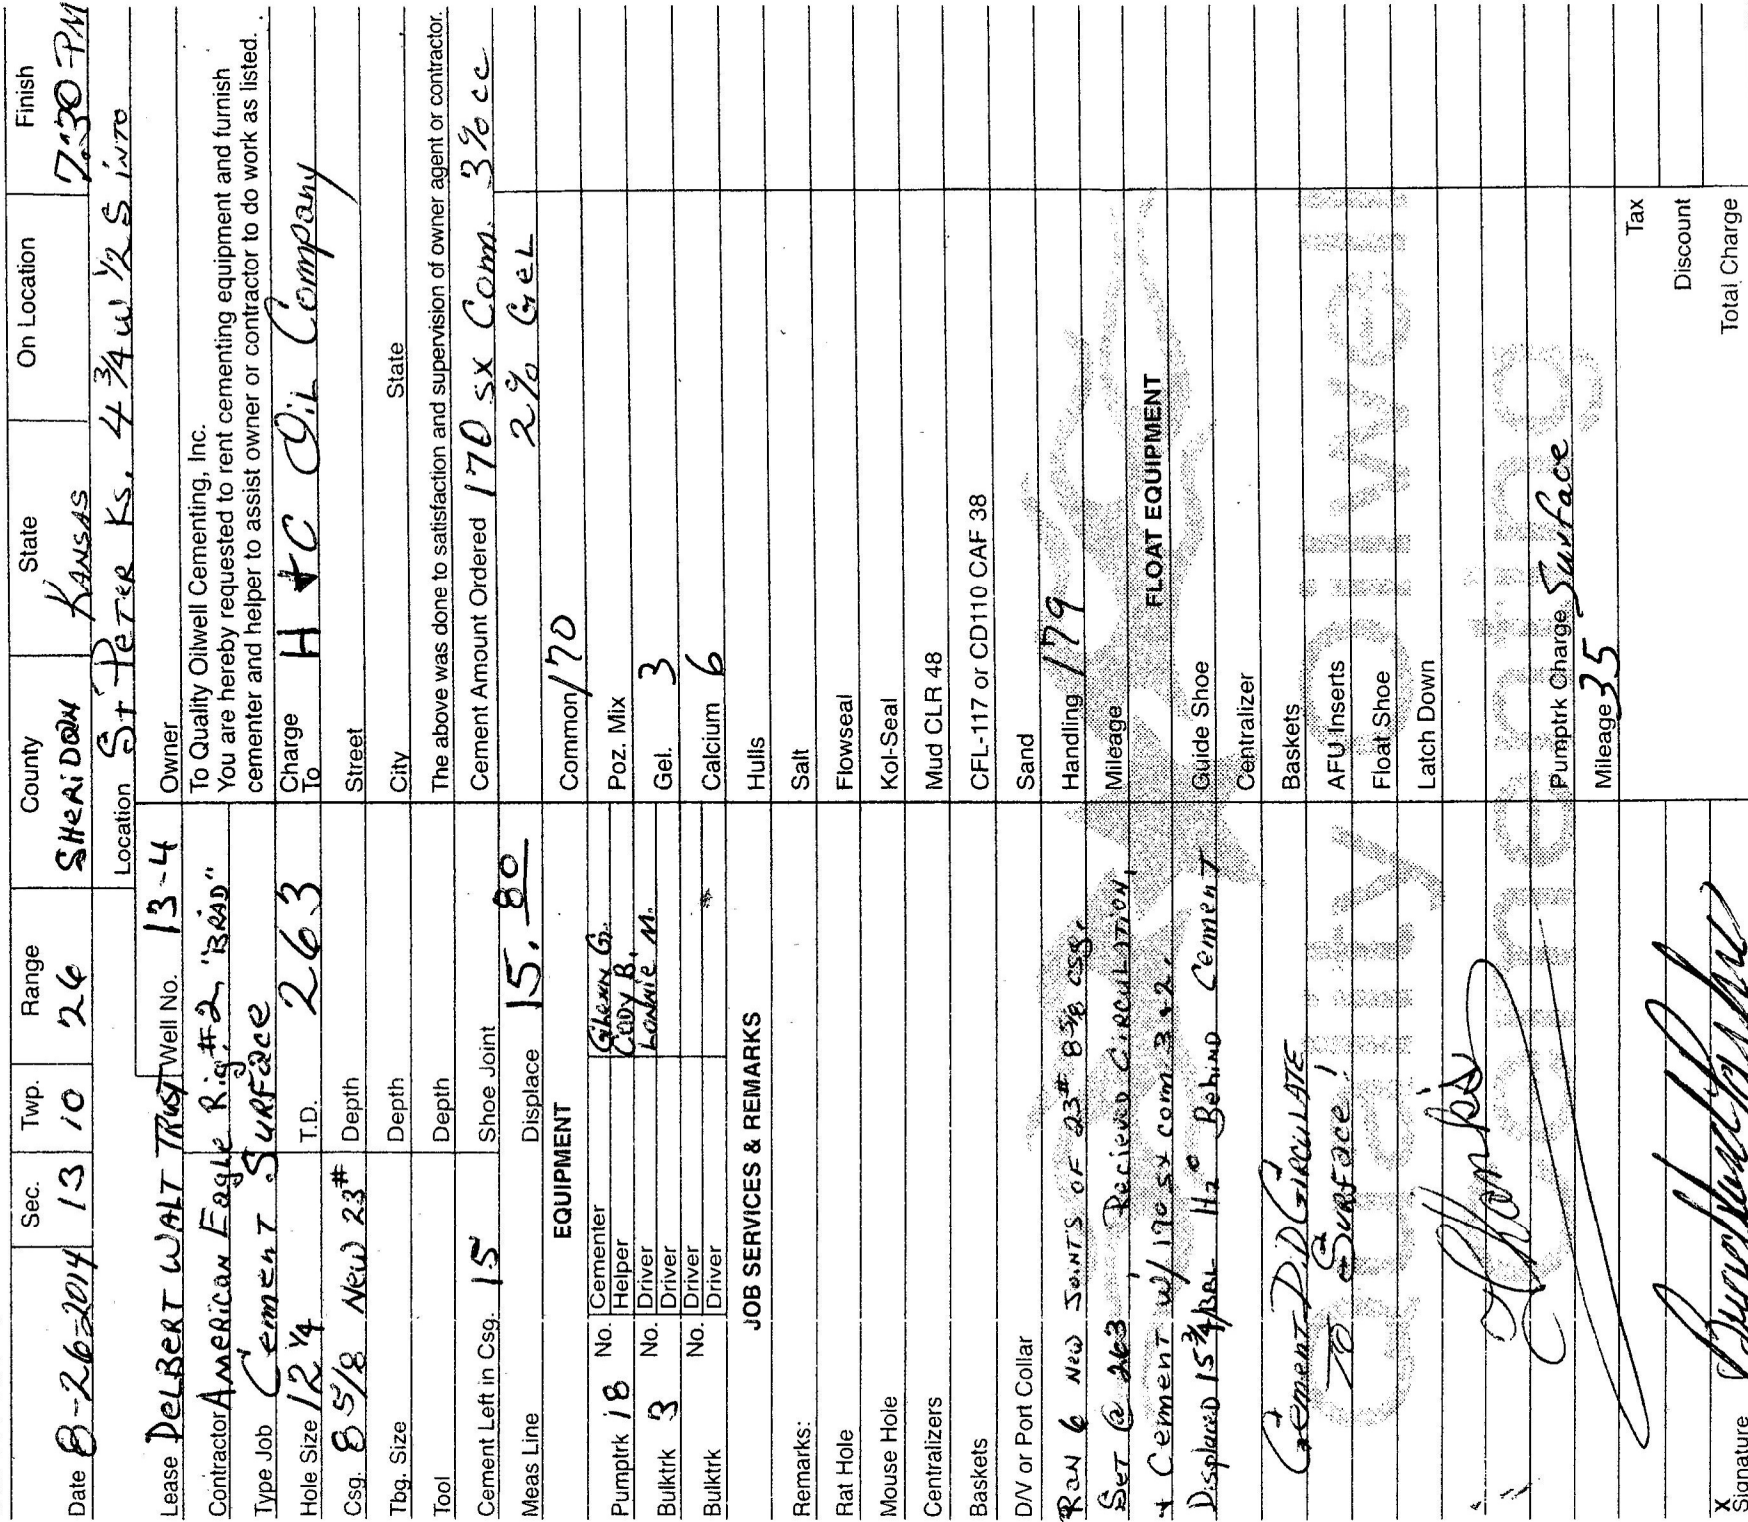 Sec. Twp. Range County State On Location Finish
Date 8-26-2014 13 10 26 SHERiDAN KANSAS 7:30 PM
Location St PETER Ks. 4 3/4 W 1/2 S iNTO
Lease DELBERT WALT TRUST Well No. 13-4 Owner
Contractor AMERICAN Eagle Rig #2, "BRAD"
Type Job Cement Surface
Hole Size 12 1/4 T.D. 263
Csg. 8 5/8 New 23# Depth
Tbg. Size Depth
Tool Depth
Cement Left in Csg. 15 Shoe Joint
Meas Line Displace 15.80
EQUIPMENT
Pumptrk 18 No. Cementer Glenn G.
Helper Cody B.
Bulktrk 3 No. Driver Lonnie M.
Driver
Bulktrk No. Driver
Driver
JOB SERVICES & REMARKS
Remarks:
Rat Hole
Mouse Hole
Centralizers
Baskets
D/V or Port Collar
RAN 6 New JOINTS OF 23# 8 5/8 csg.
SET @ 263, Recieved CiRCULATION,
+ Cement w/ 170 sx com 3+2,
Displaced 15 3/4 BBL H20 Behind Cement
Cement DiD CiRCULATE
TO SURFace!
Thanks
X
Signature
To Quality Oilwell Cementing, Inc.
You are hereby requested to rent cementing equipment and furnish
cementer and helper to assist owner or contractor to do work as listed.
Charge
To H + C OiL Company
Street
City State
The above was done to satisfaction and supervision of owner agent or contractor.
Cement Amount Ordered 170 sx Com. 3% cc
2% GeL
Common 170
Poz. Mix
Gel. 3
Calcium 6
Hulls
Salt
Flowseal
Kol-Seal
Mud CLR 48
CFL-117 or CD110 CAF 38
Sand
Handling 179
Mileage
FLOAT EQUIPMENT
Guide Shoe
Centralizer
Baskets
AFU Inserts
Float Shoe
Latch Down
Pumptrk Charge Surface
Mileage 35
Tax
Discount
Total Charge
Quality Oilwell
Cementing